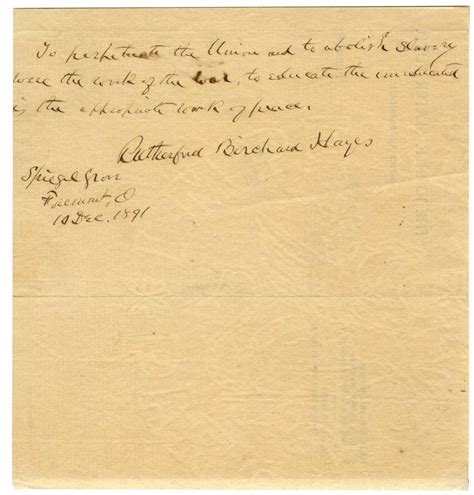 To perpetuate the Union and to abolish Slavery
were the work of the war, to educate the uneducated
is the appropriate work of peace.
Rutherford Birchard Hayes
Spiegel Grove
Fremont, O
10 Dec. 1891